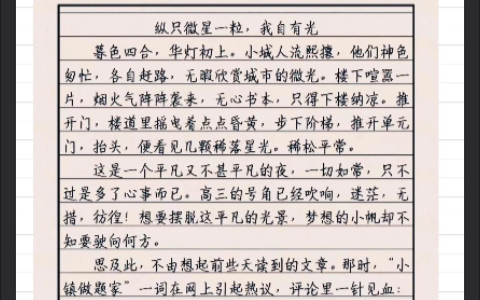 纵只微星一粒，我自有光
暮色四合，华灯初上。小城人流熙攘，他们神色
匆忙，各自赶路，无暇欣赏城市的微光。楼下喧嚣一
片，烟火气阵阵袭来，无心书本，只得下楼纳凉。推
开门，楼道里摇曳着点点昏黄，步下阶梯，推开单元
门，抬头，便看见几颗稀落星光。稀松平常。
这是一个平凡又不甚平凡的夜，一切如常，只不
过是多了心事而已。高三的号角已经吹响，迷茫，无
措，彷徨！想要摆脱这平凡的光景，梦想的小帆却不
知要驶向何方。
思及此，不由想起前些天读到的文章。那时，“小
镇做题家”一词在网上引起热议，评论里一针见血：